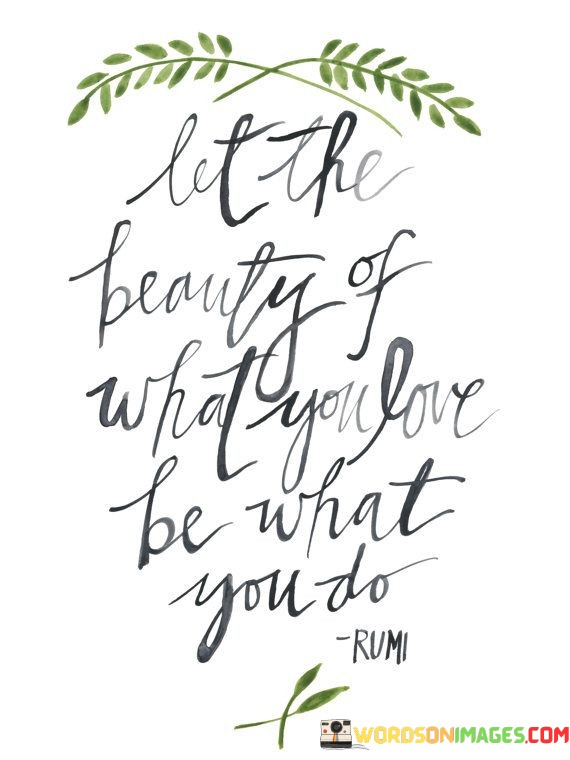 let the
beauty of
what you love
be what
you do
-RUMI
WORDSONIMAGES.COM